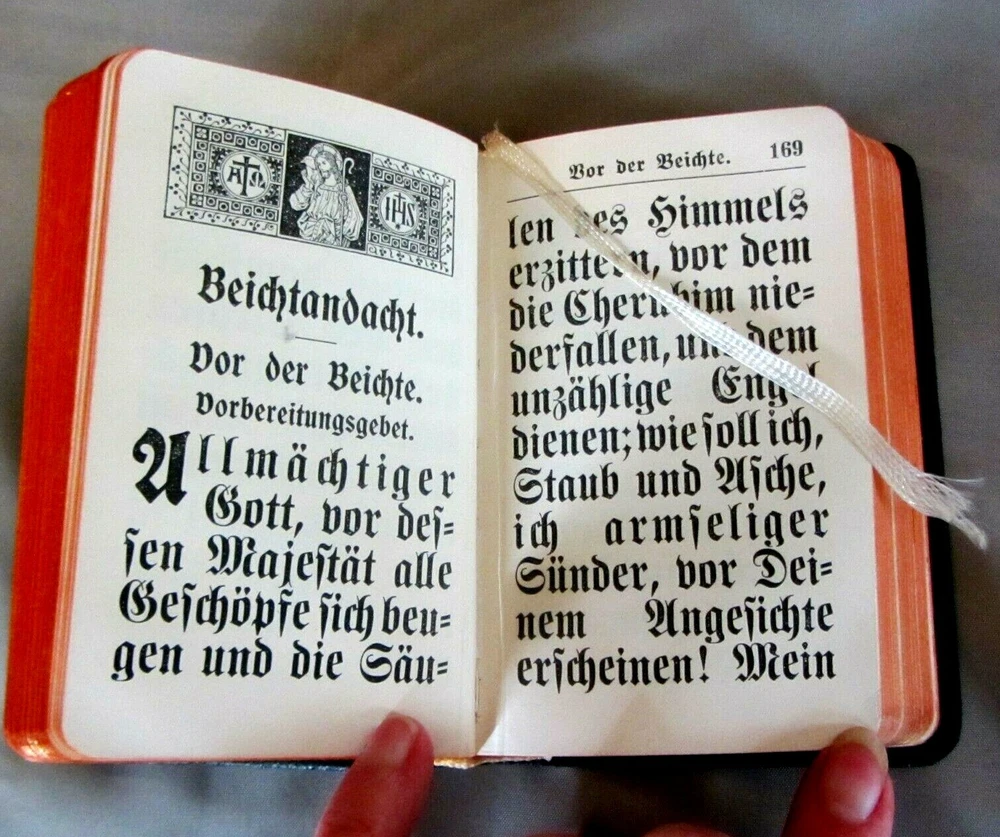 AΩ
IHS
Beichtandacht.
Vor der Beichte.
Vorbereitungsgebet.
Allmächtiger
Gott, vor des-
sen Majestät alle
Geschöpfe sich beu-
gen und die Säu-
Vor der Beichte. 169
len des Himmels
erzittern, vor dem
die Cherubim nie-
derfallen, und dem
unzählige Engel
dienen; wie soll ich,
Staub und Asche,
ich armseliger
Sünder, vor Dei-
nem Angesichte
erscheinen! Mein